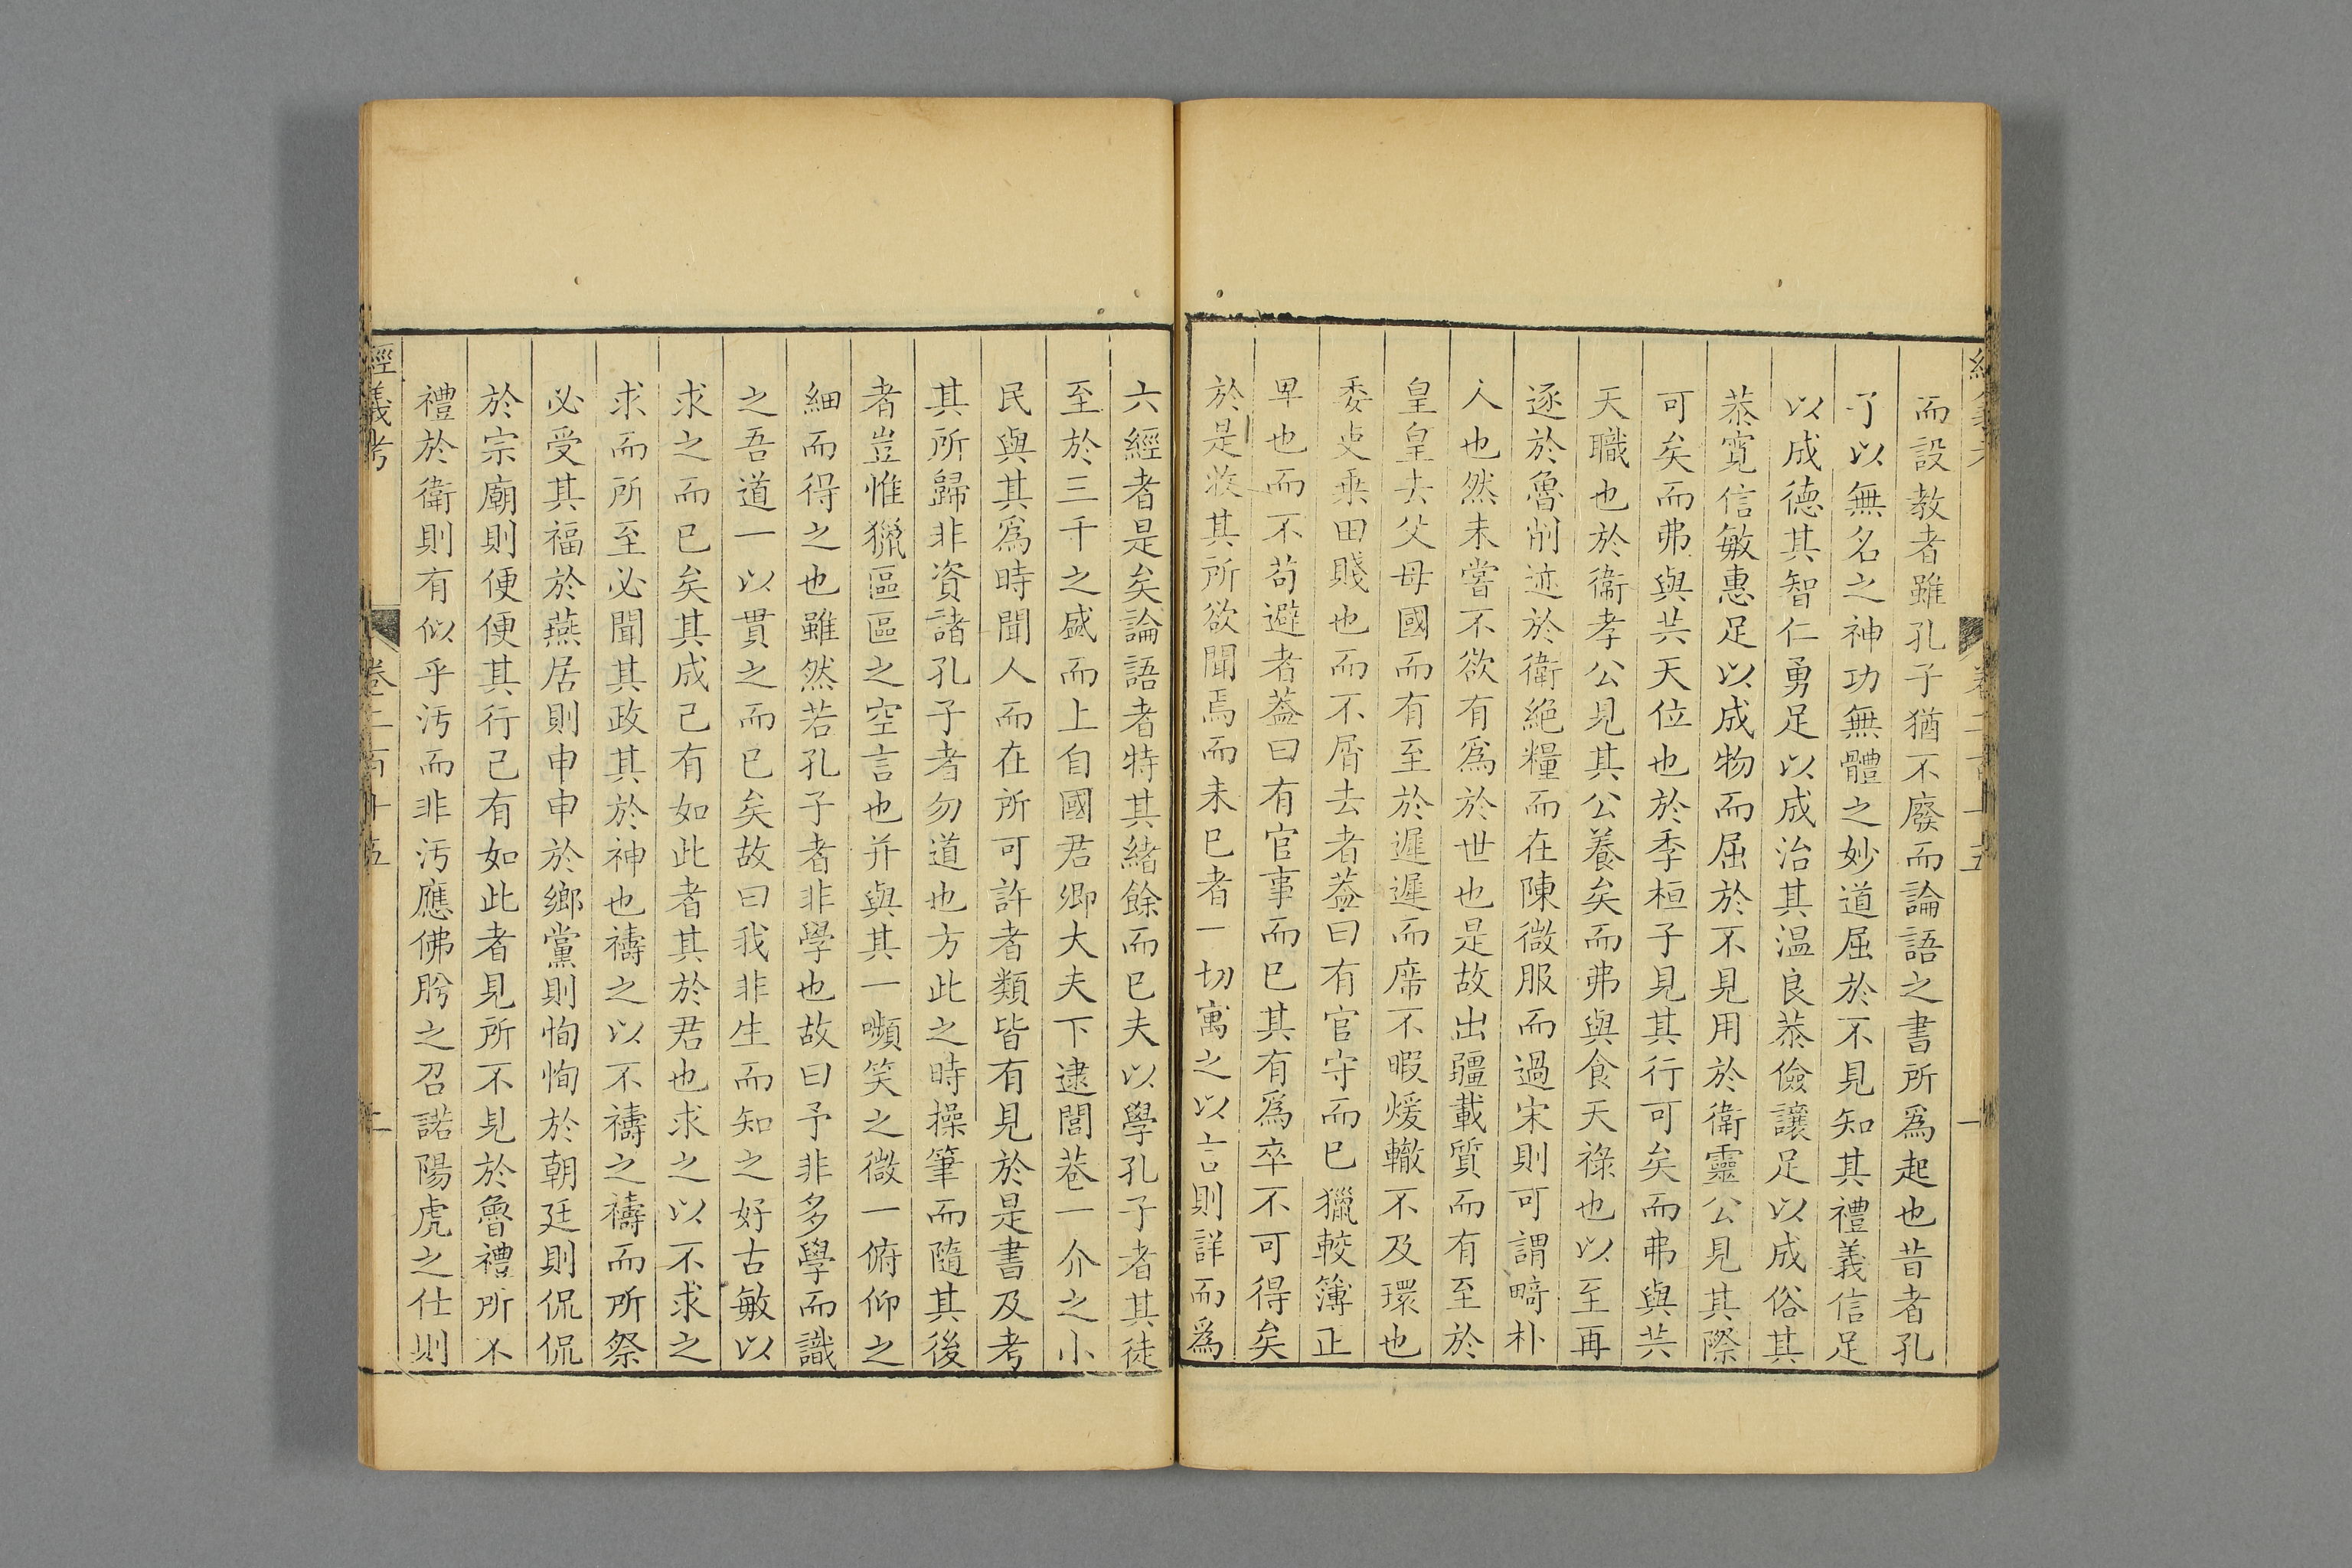 而設教者雖孔子猶不廢而論語之書所爲起也昔者孔
子以無名之神功無體之妙道屈於不見知其禮義信足
以成德其智仁勇足以成治其溫良恭儉讓足以成俗其
恭寬信敏惠足以成物而屈於不見用於衛靈公見其際
可矣而弗與共天位也於季桓子見其行可矣而弗與共
天職也於衞孝公見其公養矣而弗與食天祿也以至再
逐於魯削迹於衛絕糧而在陳微服而過宋則可謂畸朴
人也然未嘗不欲有爲於世也是故出疆載質而有至於
皇皇去父母國而有至於遲遲而席不暇煖轍不及環也
委吏乘田賤也而不屑去者葢曰有官守而已獵較簿正
卑也而不苟避者葢曰有官事而已其有爲卒不可得矣
於是收其所欲聞焉而未已者一切寓之以言則詳而爲
經義考
卷二百十五
一
六經者是矣論語者特其緒餘而已夫以學孔子者其徒
至於三千之盛而上自國君卿大夫下逮閭巷一介之小
民與其爲時聞人而在所可許者類皆有見於是書及考
其所歸非資諸孔子者勿道也方此之時操筆而隨其後
者豈惟獵區區之空言也并與其一嚬笑之微一俯仰之
細而得之也雖然若孔子者非學也故曰予非多學而識
之吾道一以貫之而已矣故曰我非生而知之好古敏以
求之而已矣其成己有如此者其於君也求之以不求之
求而所至必聞其政其於神也禱之以不禱之禱而所祭
必受其福於燕居則申申於鄉黨則恂恂於朝廷則侃侃
於宗廟則便便其行己有如此者見所不見於魯禮所不
禮於衛則有似乎汚而非汚應佛肸之召諾陽虎之仕則
經義考
卷二百十五
二